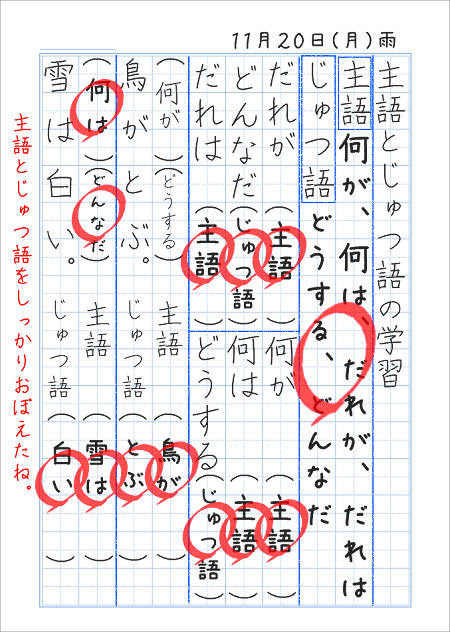 11月20日(月)雨
主語とじゅつ語の学習
主語 何が、何は、だれが、だれは
じゅつ語 どうする、どんなだ
だれが(主語)
どんなだ(じゅつ語)
だれは(主語)
何が(主語)
何は(主語)
どうする(じゅつ語)
(何が)(どうする)
鳥がとぶ。
主語(鳥が)
じゅつ語(とぶ)
(何は)(どんなだ)
雪は白い。
主語(雪は)
じゅつ語(白い)
主語とじゅつ語をしっかりおぼえたね。